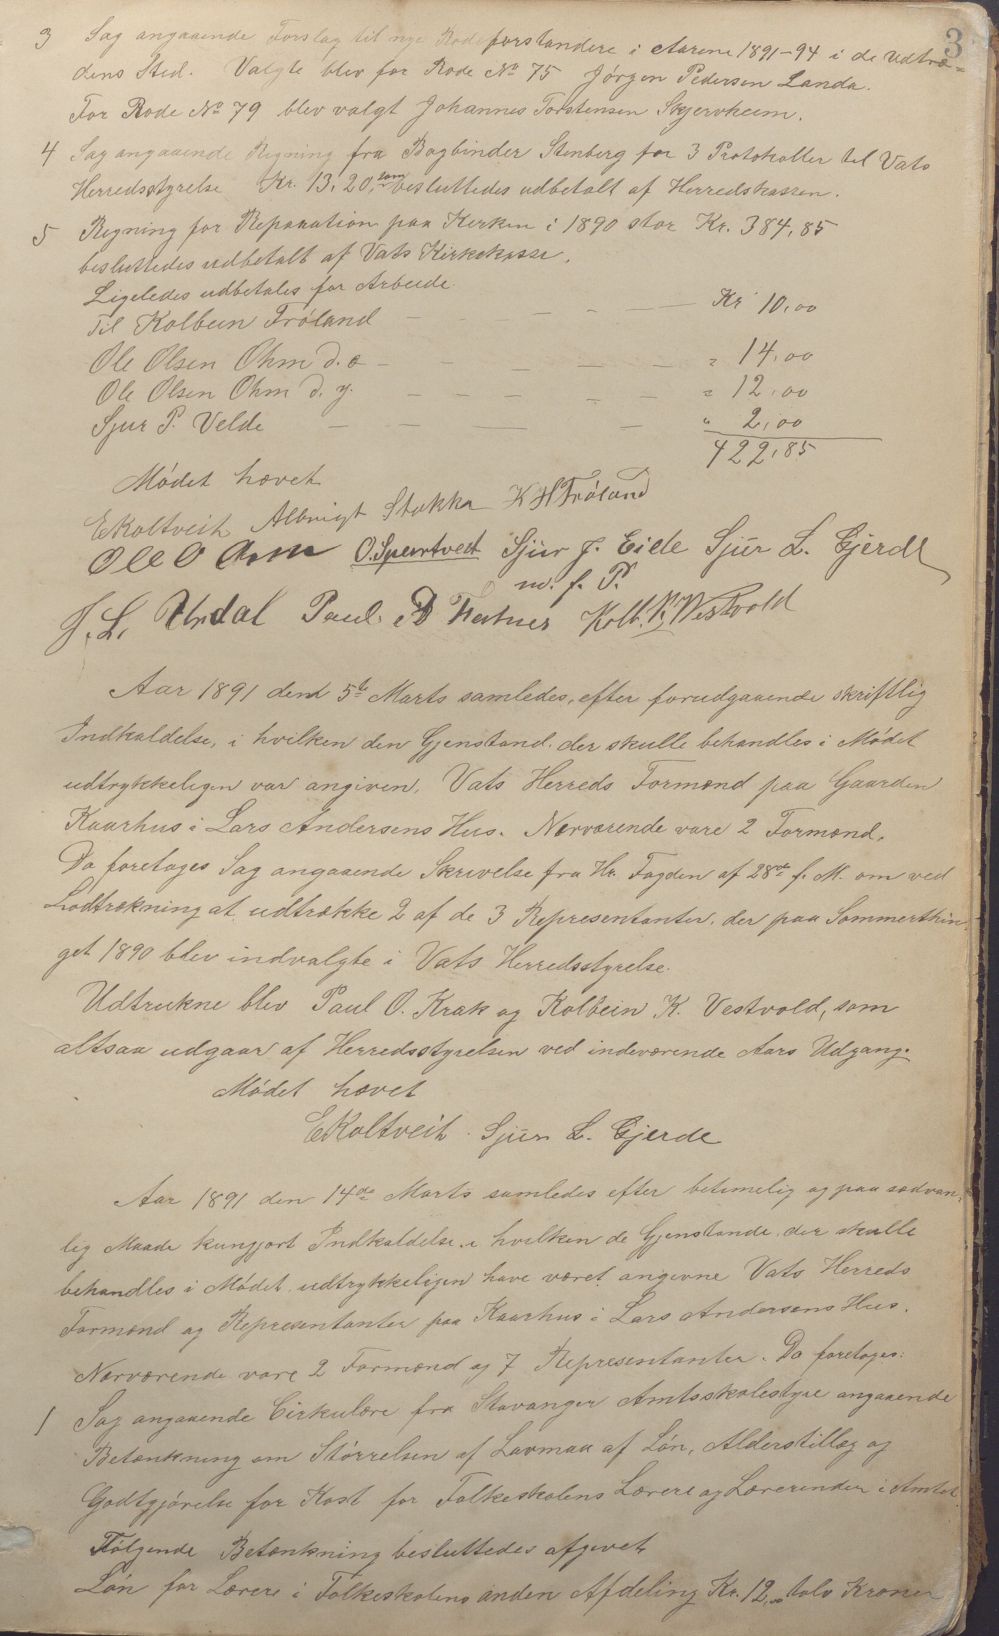 3
3 Sag angaaende Forslag til nye Rodeforstandere i Aarene 1891-94 i de udtræ-
dens Sted. Valgte blev for Rode No 75 Jörgen Pedersen Landa.
For Rode No 79 blev valgt Johannes Torstensen Skjerveheim.
4 Sag angaaende Regning fra Bogbinder Stenberg for 3 Protokoller til Vats
Herredsstyrelse Kr. 13,20, som besluttedes udbetalt af Herredskassen.
5 Regning for Reparation paa Kirken i 1890 stor Kr. 384,85
besluttedes udbetalt af Vats Kirkekasse.
Ligeledes udbetales for Arbeide
Til Kolbein Fröland — Kr 10,00
Ole Olsen Ohm d. æ — " 14,00
Ole Olsen Ohm d. y. — " 12,00
Sjur P. Velde — " 2,00
422,85
Mödet hævet
EKoltveit Albrigt Stakka KHFröland
Ole O Aam O.Speartveit Sjur J. Eide Sjur L. Gjerde
m. f. P.
J. L. Urdal Paul Kolb. K. Westvold
Aar 1891 den 5te Marts samledes, efter forudgaaende skriftlig
Indkaldelse, i hvilken den Gjenstand, der skulle behandles i Mödet
udtrykkeligen var angiven, Vats Herreds Formænd paa Gaarden
Kaarhus i Lars Andersens Hus. Nærværende vare 2 Formænd.
Da foretoges Sag angaaende Skrivelse fra Hr. Fogden af 28de f. M. om ved
Lodtrækning at udtrække 2 af de 3 Representanter, der paa Sommerthin-
get 1890 blev indvalgte i Vats Herredsstyrelse.
Udtrukne blev Paul O. Krak og Kolbein K. Vestvold, som
altsaa udgaar af Herredsstyrelsen ved indeværende Aars Udgang.
Mödet hævet
EKoltveit. Sjur L. Gjerde
Aar 1891 den 14de Marts samledes efter betimelig og paa sædvan-
lig Maade kungjort Indkaldelse, i hvilken de Gjenstande, der skulle
behandles i Mödet, udtrykkeligen have været angivne Vats Herreds
Formænd og Representanter paa Kaarhus i Lars Andersens Hus.
Nærværende vare 2 Formænd og 7 Representanter. Da foretoges:
1 Sag angaaende Cirkulære fra Stavanger Amtsskolestyre angaaende
Betænkning om Störrelsen af Lavmaa af Lön, Alderstillæg og
Godtgjörelse for Kost for Folkeskolens Lærere og Lærerinder i Amtet.
Fölgende Betænkning besluttedes afgivet
Lön for Lærere i Folkeskolens anden Afdeling Kr. 12,00 tolv Kroner